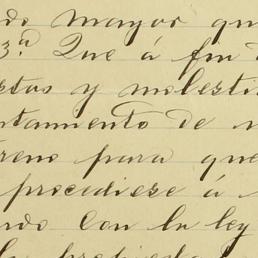 do mayor qu
3ª Que á fin d
rtas y molesti
ntamiento de
treno para que
procediese á
ndo con la ley